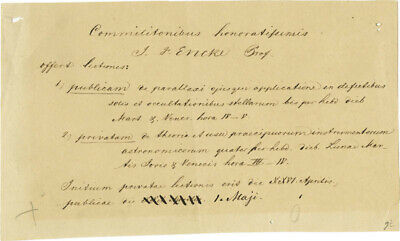 Commilitonibus honoratissimis
J. F. Encke Prof.
offert lectiones:
1) publicam de parallaxi ejusque applicatione in defectibus
solis et occultationibus stellarum bis per hebd dieb
Mart & Vener. hora IV-V
2) privatam de theoria et usu praecipuorum instrumentorum
astronomicorum quater per hebd. dieb. Lunae Mar-
tis Jovis & Veneris hora III-IV.
Initium privatae lectionis erit die XXVI Aprilis,
publicae die 1. Maji.